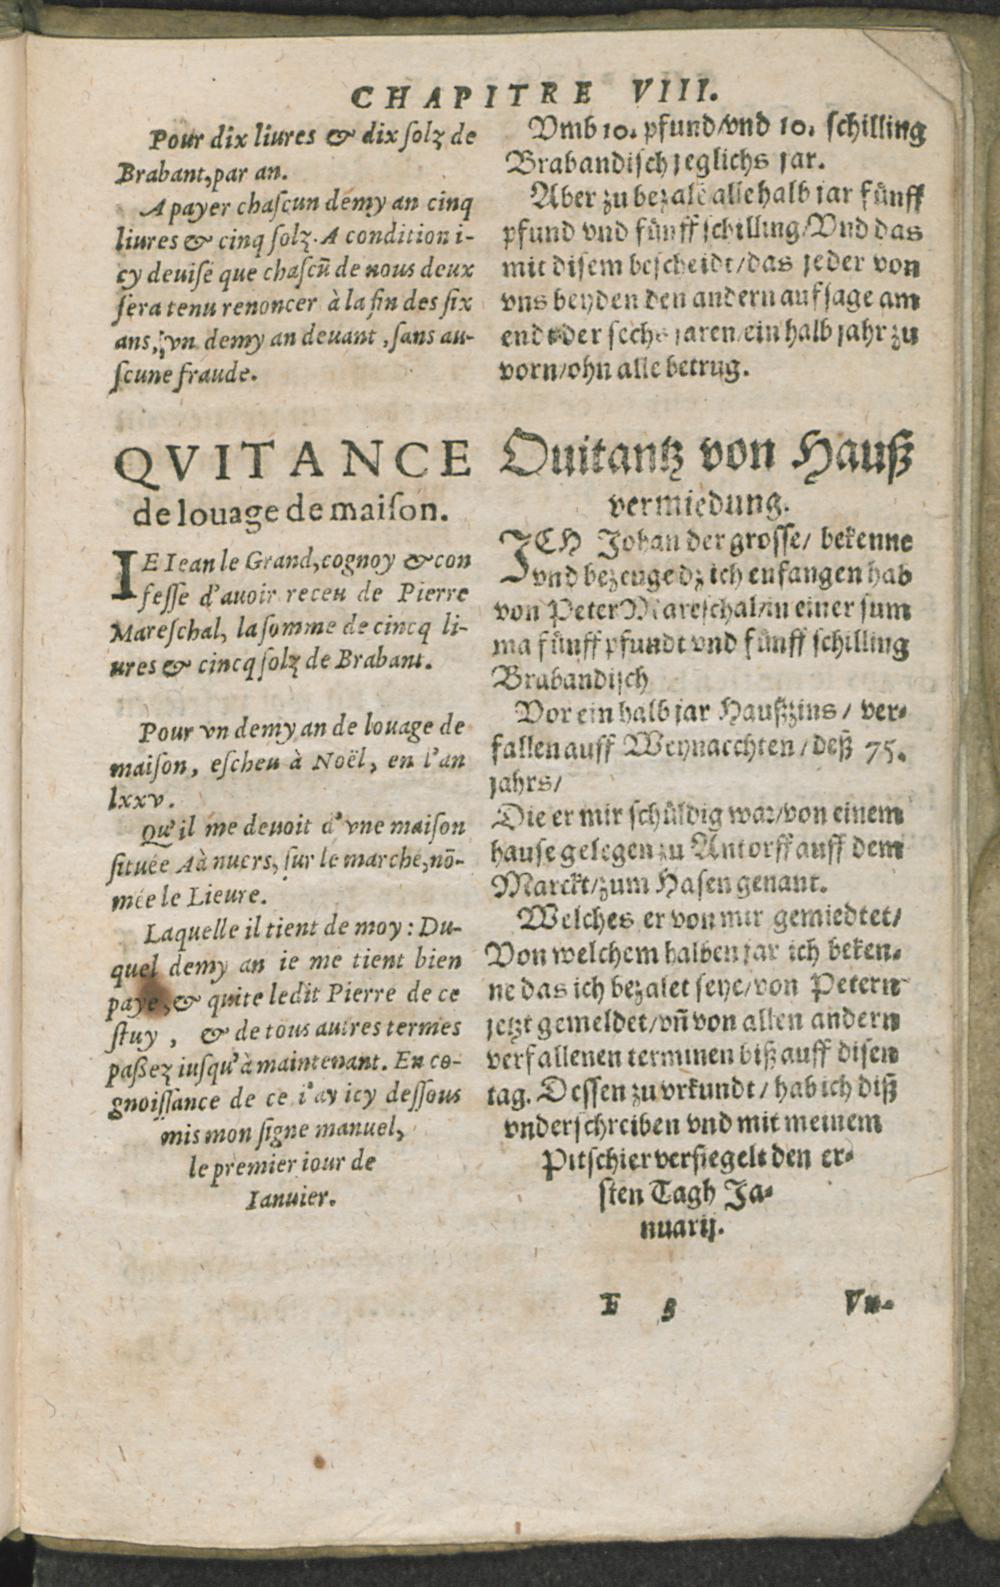 CHAPITRE VIII.
Pour dix liures & dix ſolz de
Brabant, par an.
A payer chaſcun demy an cinq
liures & cinq ſolz. A condition i-
cy deuiſé que chaſcũ de nous deux
ſera tenu renoncer à la fin des ſix
ans, vn demy an deuant, ſans au-
ſcune fraude.
QVITANCE
de louage de maiſon.
IE Iean le Grand, cognoy & con
feſſe d'auoir receu de Pierre
Mareſchal, la ſomme de cincq li-
ures & cincq ſolz de Brabant.
Pour vn demy an de louage de
maiſon, eſcheu à Noël, en l'an
lxxv.
Qu'il me deuoit d'vne maiſon
ſituée Aànuers, ſur le marché, nõ-
mée le Lieure.
Laquelle il tient de moy: Du-
quel demy an ie me tient bien
payé, & quite ledit Pierre de ce
ſtuy, & de tous autres termes
paſſez iuſqu'à maintenant. En co-
gnoiſſance de ce i'ay icy deſſous
mis mon ſigne manuel,
le premier iour de
Ianuier.
Vmb 10. pfund/vnd 10. ſchilling
Brabandiſch jeglichs jar.
Aber zu bezalẽ alle halb jar fünff
pfund vnd fünff ſchilling/Vnd das
mit diſem beſcheidt/das jeder von
vns beyden den andern auffſage am
ende der ſechs jaren/ein halb jahr zu
vorn/ohn alle betrug.
Quitantz von Hauß
vermiedung.
ICH Johan der groſſe/ bekenne
vnd bezeuge dz ich enfangen hab
von Peter Mareſchal/in einer ſum
ma fünff pfundt vnd fünff ſchilling
Brabandiſch
Vor ein halb jar Haußzins / ver-
fallen auff Weynacchten / deß 75.
jahrs/
Die er mir ſchüldig war/von einem
hauſe gelegen zu Antorff auff dem
Marckt/zum Haſen genant.
Welches er von mir gemiedtet/
Von welchem halben jar ich beken-
ne das ich bezalet ſeye/von Petern
jetzt gemeldet/vñ von allen andern
verfallenen terminen biß auff diſen
tag. Deſſen zu vrkundt / hab ich diß
vnderſchreiben vnd mit meinem
Pitſchier verſiegelt den er-
ſten Tagh Ja-
nuarij.
E 3 Vn-